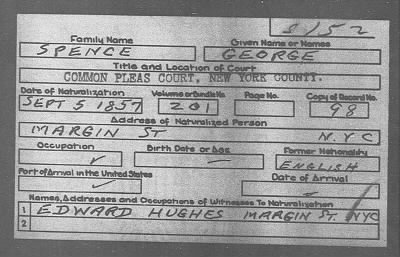 S152
Family Name Given Name or Names
SPENCE GEORGE
Title and Location of Court
COMMON PLEAS COURT, NEW YORK COUNTY.
Date of Naturalization Volume or Bundle No. Page No. Copy of Record No.
SEPT 5 1857 201 98
Address of Naturalized Person
MARGIN ST N.Y.C
Occupation Birth Date or Age Former Nationality
ENGLISH
Port of Arrival in the United States Date of Arrival
Names, Addresses and Occupations of Witnesses To Naturalization
1 EDWARD HUGHES MARGIN ST. NYC
2